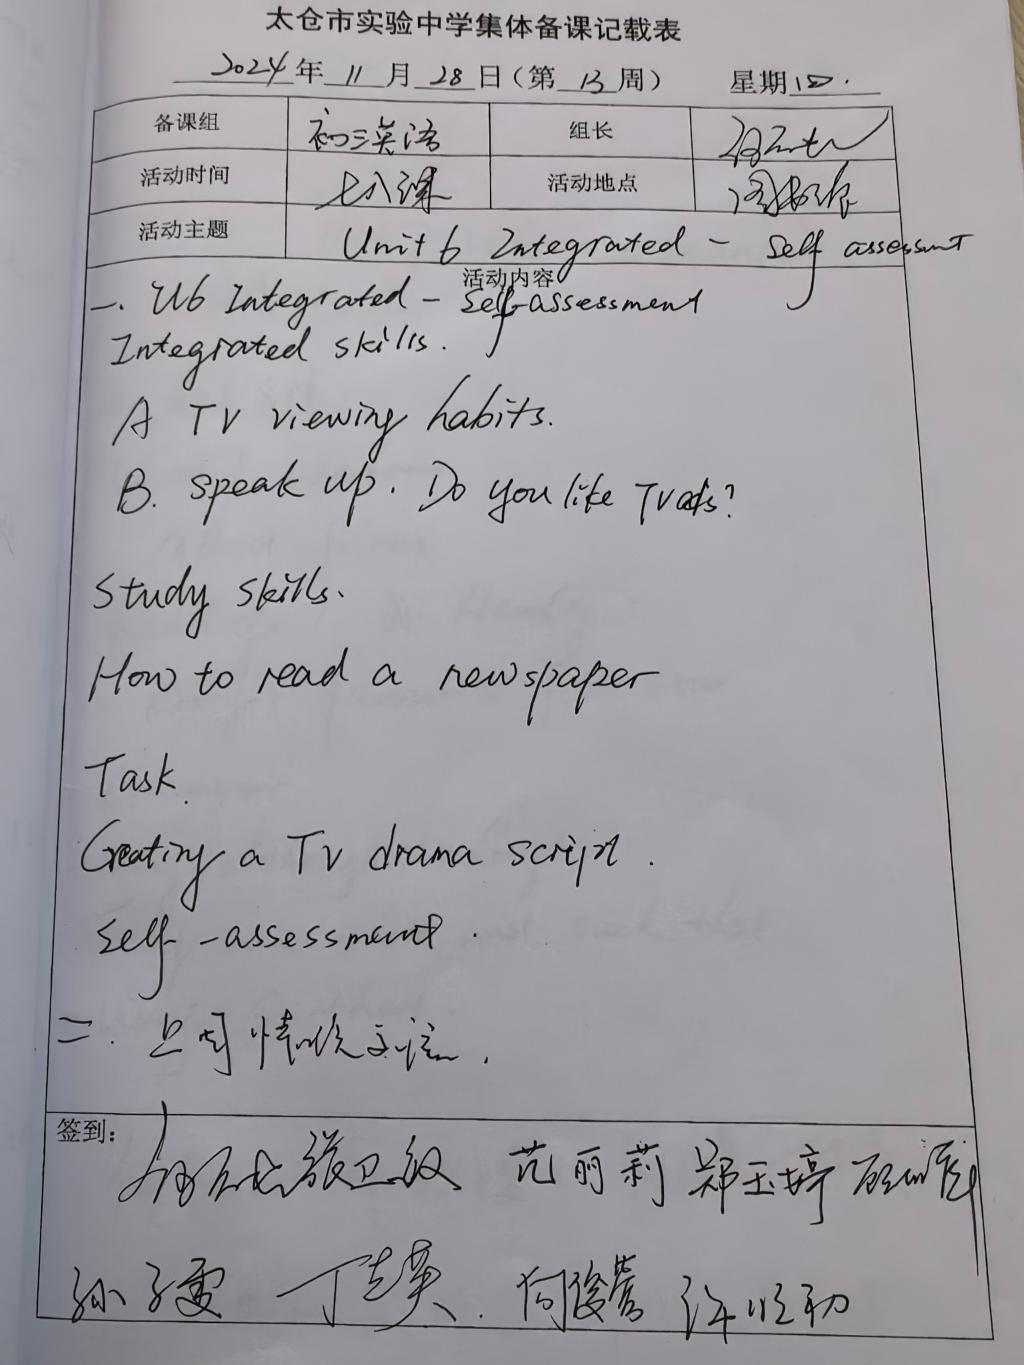 太仓市实验中学集体备课记载表
2024年11月28日(第13周) 星期四.
备课组 初三英语 组长
活动时间 七八课 活动地点 阅
活动主题 Unit 6 Integrated - self assessmt
活动内容
一. U6 Integrated - self-assessment
Integrated skills.
A TV viewing habits.
B. speak up. Do you like TV ads?
Study skills.
How to read a newspaper
Task.
Creating a TV drama script.
self-assessment.
二. 上周情况交流.
签到:
张卫敏 范丽莉 郑玉婷
孙子雯 丁志英. 何俊莺 许順初